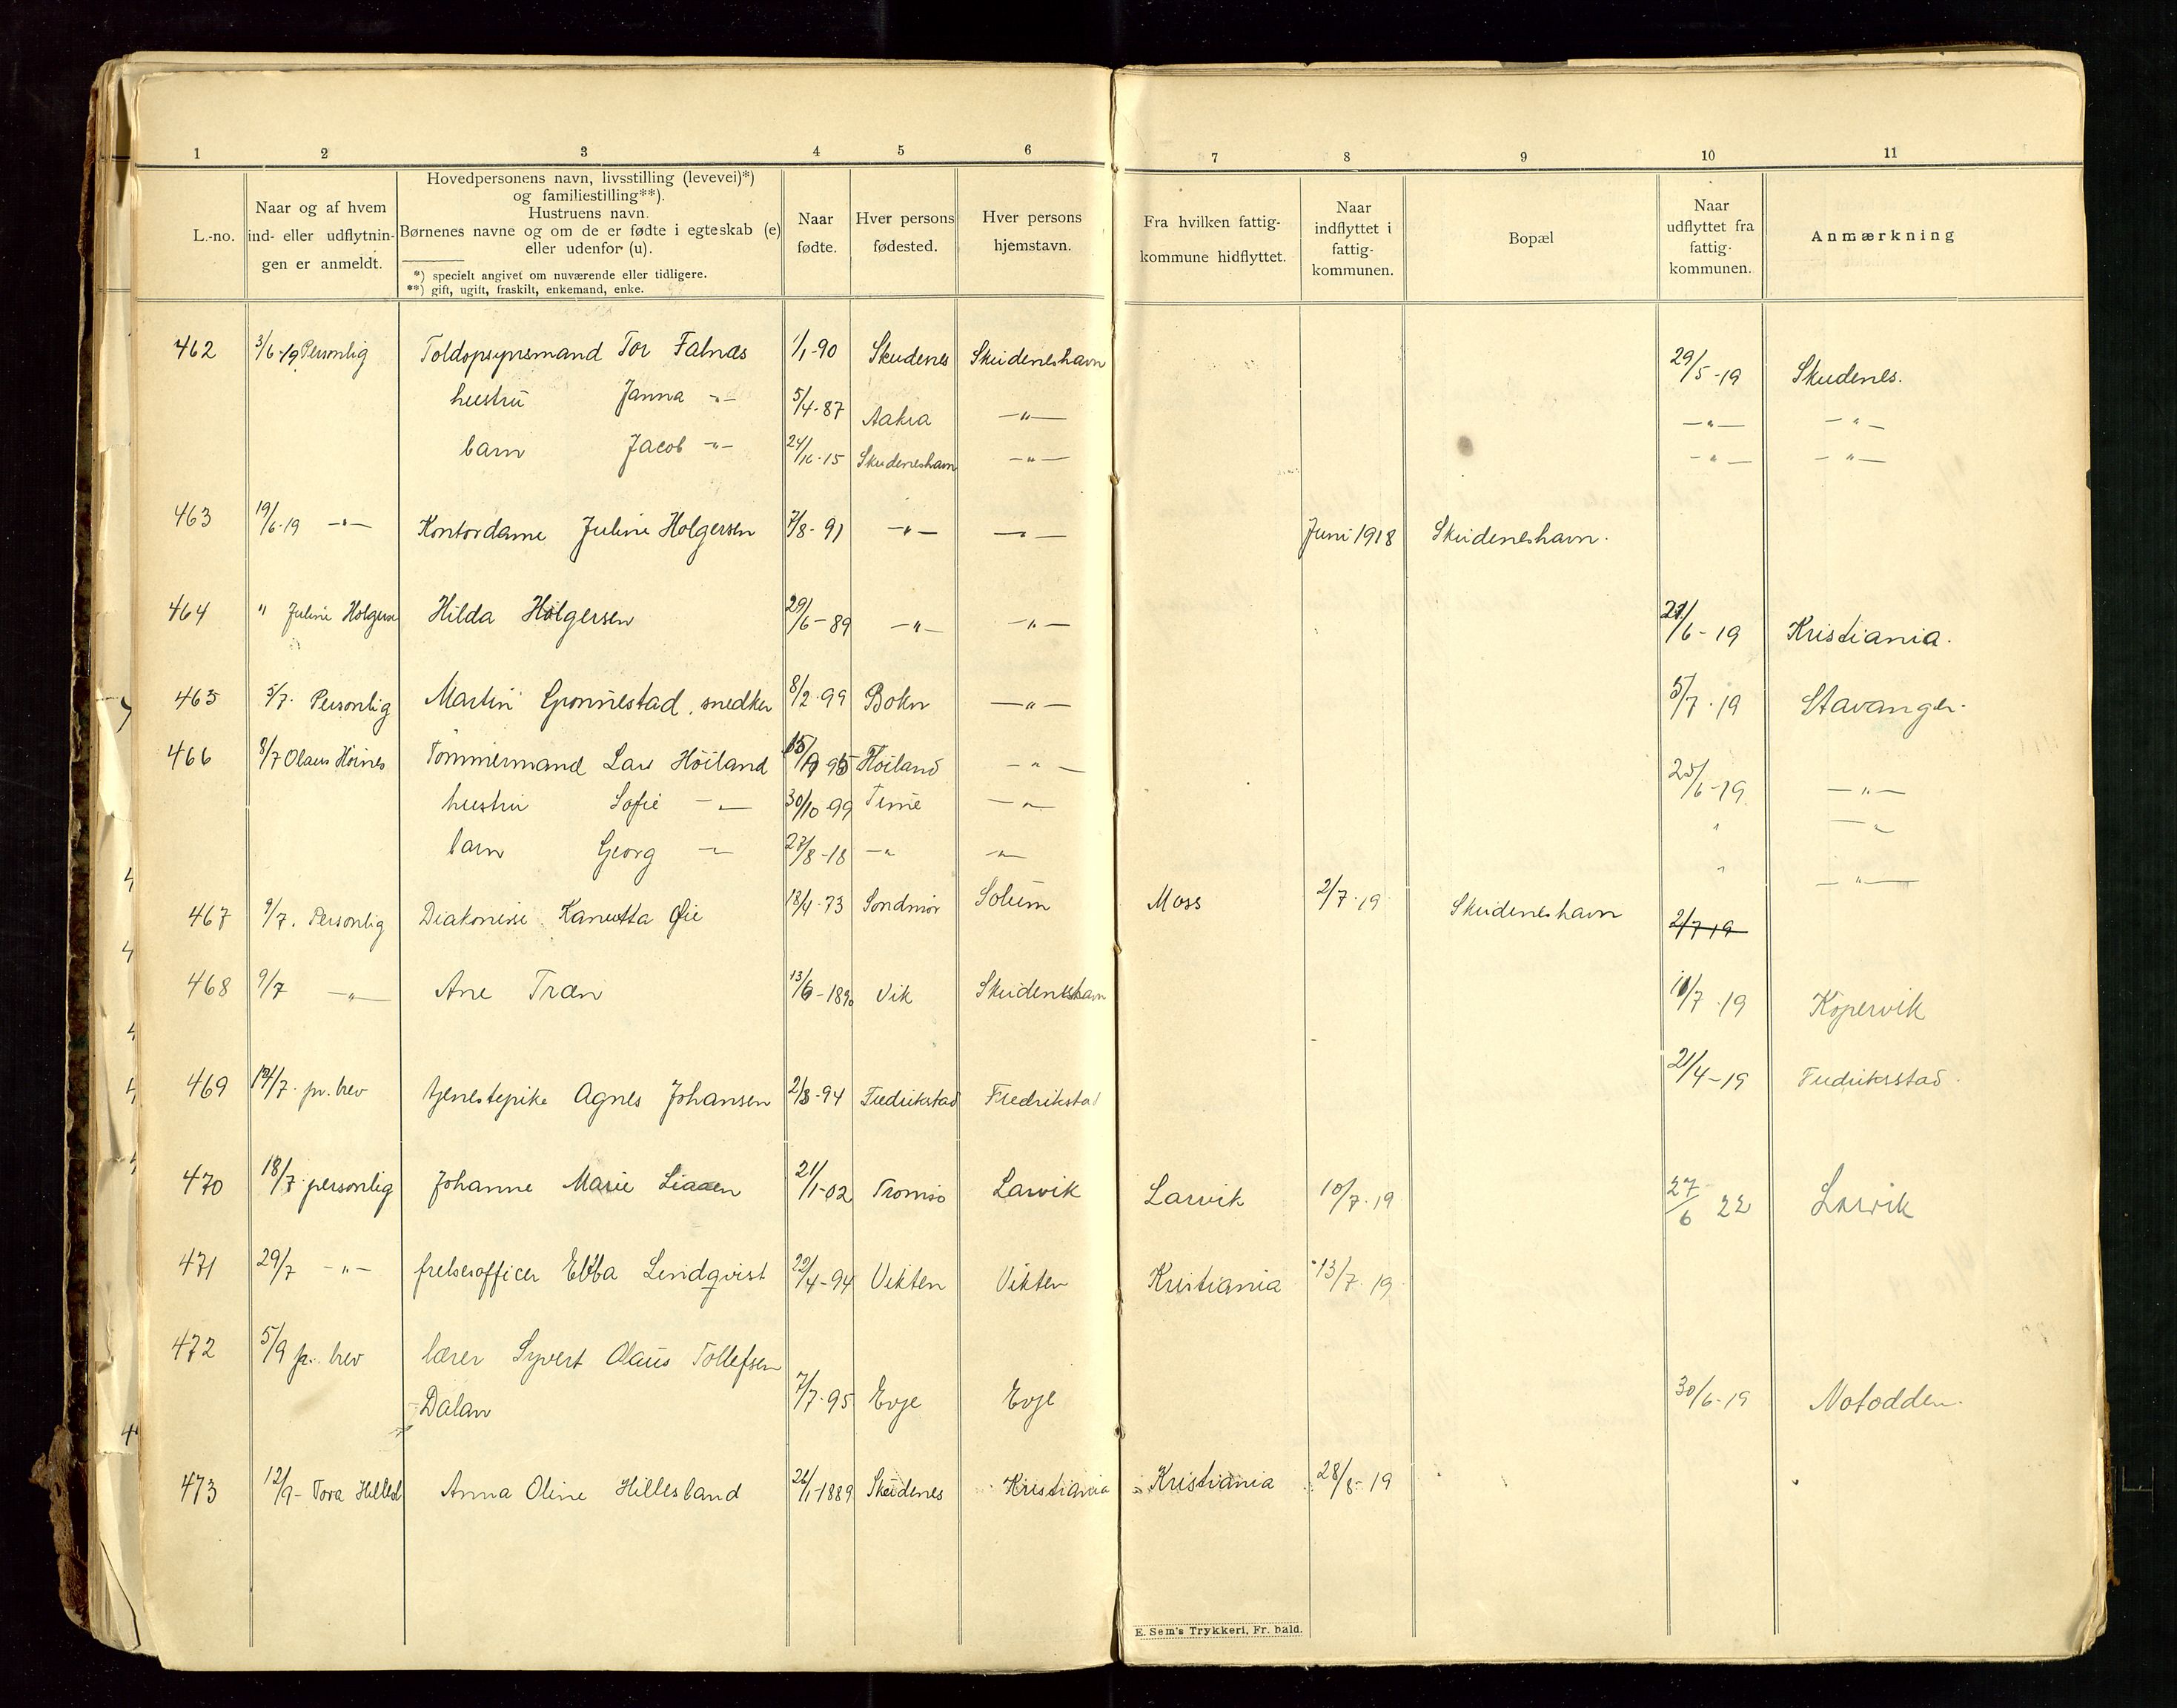 1 2 3 4 5 6 7 8 9 10 11
L.-no.
Naar og af hvem
ind- eller udflytnin-
gen er anmeldt.
Hovedpersonens navn, livsstilling (levevei)*)
og familiestilling**).
Hustruens navn.
Børnenes navne og om de er fødte i egteskab (e)
eller udenfor (u).
*) specielt angivet om nuværende eller tidligere.
**) gift, ugift, fraskilt, enkemand, enke.
Naar
fødte.
Hver persons
fødested.
Hver persons
hjemstavn.
Fra hvilken fattig-
kommune hidflyttet.
Naar
indflyttet i
fattig-
kommunen.
Bopæl
Naar
udflyttet fra
fattig-
kommunen.
Anmærkning
462 3/6-19 Personlig Toldopsynsmand Tor Falnæs 1/1-90 Skudenes Skudeneshavn 29/5-19 Skudenes.
hustru Janna -"- 5/4-87 Aakra -"- -"- -"-
barn Jacob -"- 24/10-15 Skudeneshavn -"- -"- -"-
463 19/6-19 -"- Kontordame Juline Holgersen 7/8-91 -"- -"- Juni 1918 Skudeneshavn.
464 " Juline Holgerse Hilda Holgersen 29/6-89 -"- -"- 21/6-19 Kristiania.
465 5/7. Personlig Martin Grønnestad, snedker 8/2-99 Bokn -"- 5/7-19 Stavanger.
466 8/7 Olaus Høines Tømmermand Lars Höiland 95 Höiland -"- 25/6-19 -"-
hustru Sofie -"- 30/10-99 Time -"- " -"-
barn Georg -"- 27/8-18 -"- -"- " -"-
467 9/7. Personlig Diakonisse Kanutta Øie 18/4-73 Söndmör Solum Moss 2/7-19 Skudeneshavn 2/7 19
468 9/7 -"- Ane Træn 13/6-1890 Vik Skudeneshavn 10/7-19 Kopervik
469 14/7. pr. brev tjenestepike Agnes Johansen 2/8-94 Fredrikstad Fredrikstad 21/4-19 Fredriksstad.
470 18/7 personlig Johanne Marie Liaaen 21/1-02 Tromsø Larvik Larvik 10/7-19 27/6 22 Larvik
471 29/7 -"- frelsesofficer Ebba Lindqvist 22/4-94 Vikten Vikten Kristiania 13/7-19
472 5/9 pr. brev lærer Syvert Olaus Tollefsen
Dalan 7/7-95 Evje Evje 30/6-19 Notodden.
473 12/9- Tora Hillesl Anna Oline Hillesland 26/1-1889 Skudenes Kristiania Kristiania 28/8-19
E. Sem's Trykkeri, Fr. hald.